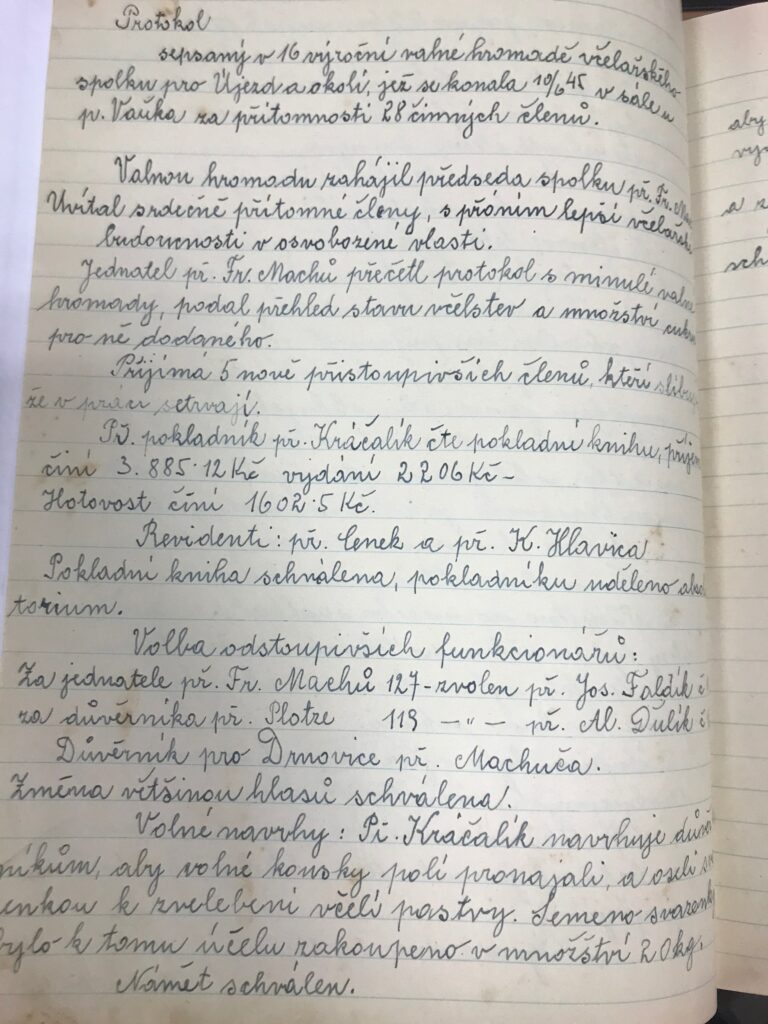 Protokol
sepsaný v 16 výroční valné hromadě včelařského
spolku pro Újezd a okolí, jež se konala 10/6 45 v sále u
p. Vaňka za přítomnosti 28 činných členů.
Valnou hromadu zahájil předseda spolku př. Fr.
Uvítal srdečně přítomné členy, s přáním lepší včelařsk
budoucnosti v osvobozené vlasti.
Jednatel př. Fr. Machů přečetl protokol s minulé valné
hromady, podal přehled stavu včelstev a množství cukru
pro ně dodaného.
Přijímá 5 nově přistoupivších členů, kteří slibují
že v práci setrvají.
Př. pokladník př. Kráčalík čte pokladní knihu, příjem
činí 3.885·12 Kč vydání 2206 Kč-
Hotovost činí 1602·5 Kč.
Revidenti: př. Cenek a př. K. Hlavica
Pokladní kniha schválena, pokladníku uděleno abso
torium.
Volba odstoupivších funkcionářů:
Za jednatele př. Fr. Machů 127-zvolen př. Jos. Faldík č
za důvěrníka př. Plotze 119 —„— př. Al. Ďulík č
Důvěrník pro Drnovice př. Machuča.
Změna většinou hlasů schválena.
Volné navrhy: Př. Kráčalík navrhuje důvěr
níkům, aby volné kousky polí pronajali, a oseli sva
enkou k zvelebení včelí pastvy. Semeno svazenky
bylo k tomu účelu zakoupeno v množství 20 kg.
Námět schválen.
aby
vys
a z
sch